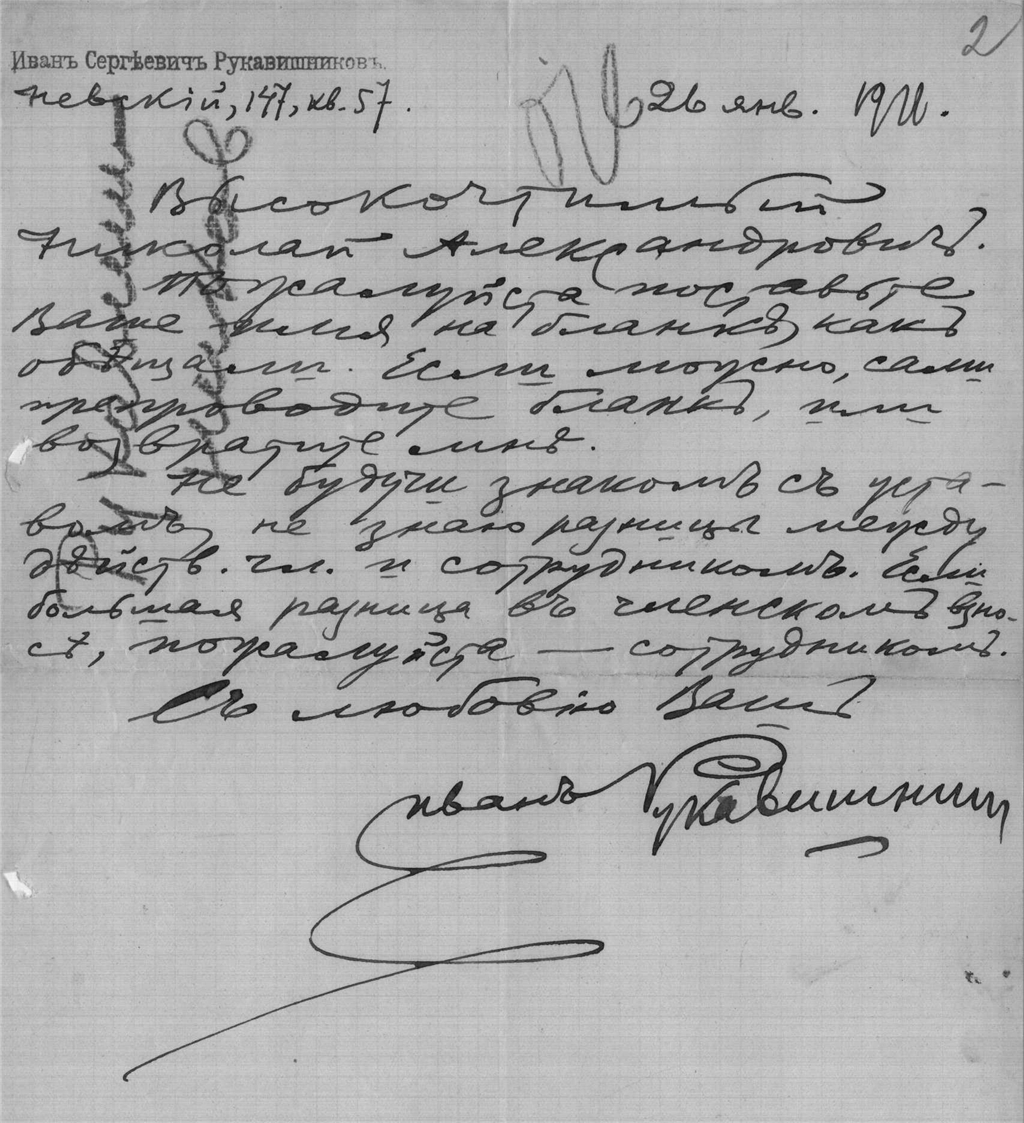 2
Иванъ Сергѣевичъ Рукавишниковъ.
Невскій, 147, кв. 57.
26 янв. 1911.
Высокочтимый
Николай Александровичъ.
Пожалуйста поставьте
Ваше имя на бланкѣ, какъ
обѣщали. Если можно, сами
препроводите бланкъ, или
возвратите мнѣ.
Не будучи знакомъ съ уста-
вомъ, не знаю разницы между
дѣйств. чл. и сотрудникомъ. Если
большая разница въ членскомъ взно-
сѣ, пожалуйста — сотрудникомъ.
Съ любовію Вашъ
Иванъ Рукавишник